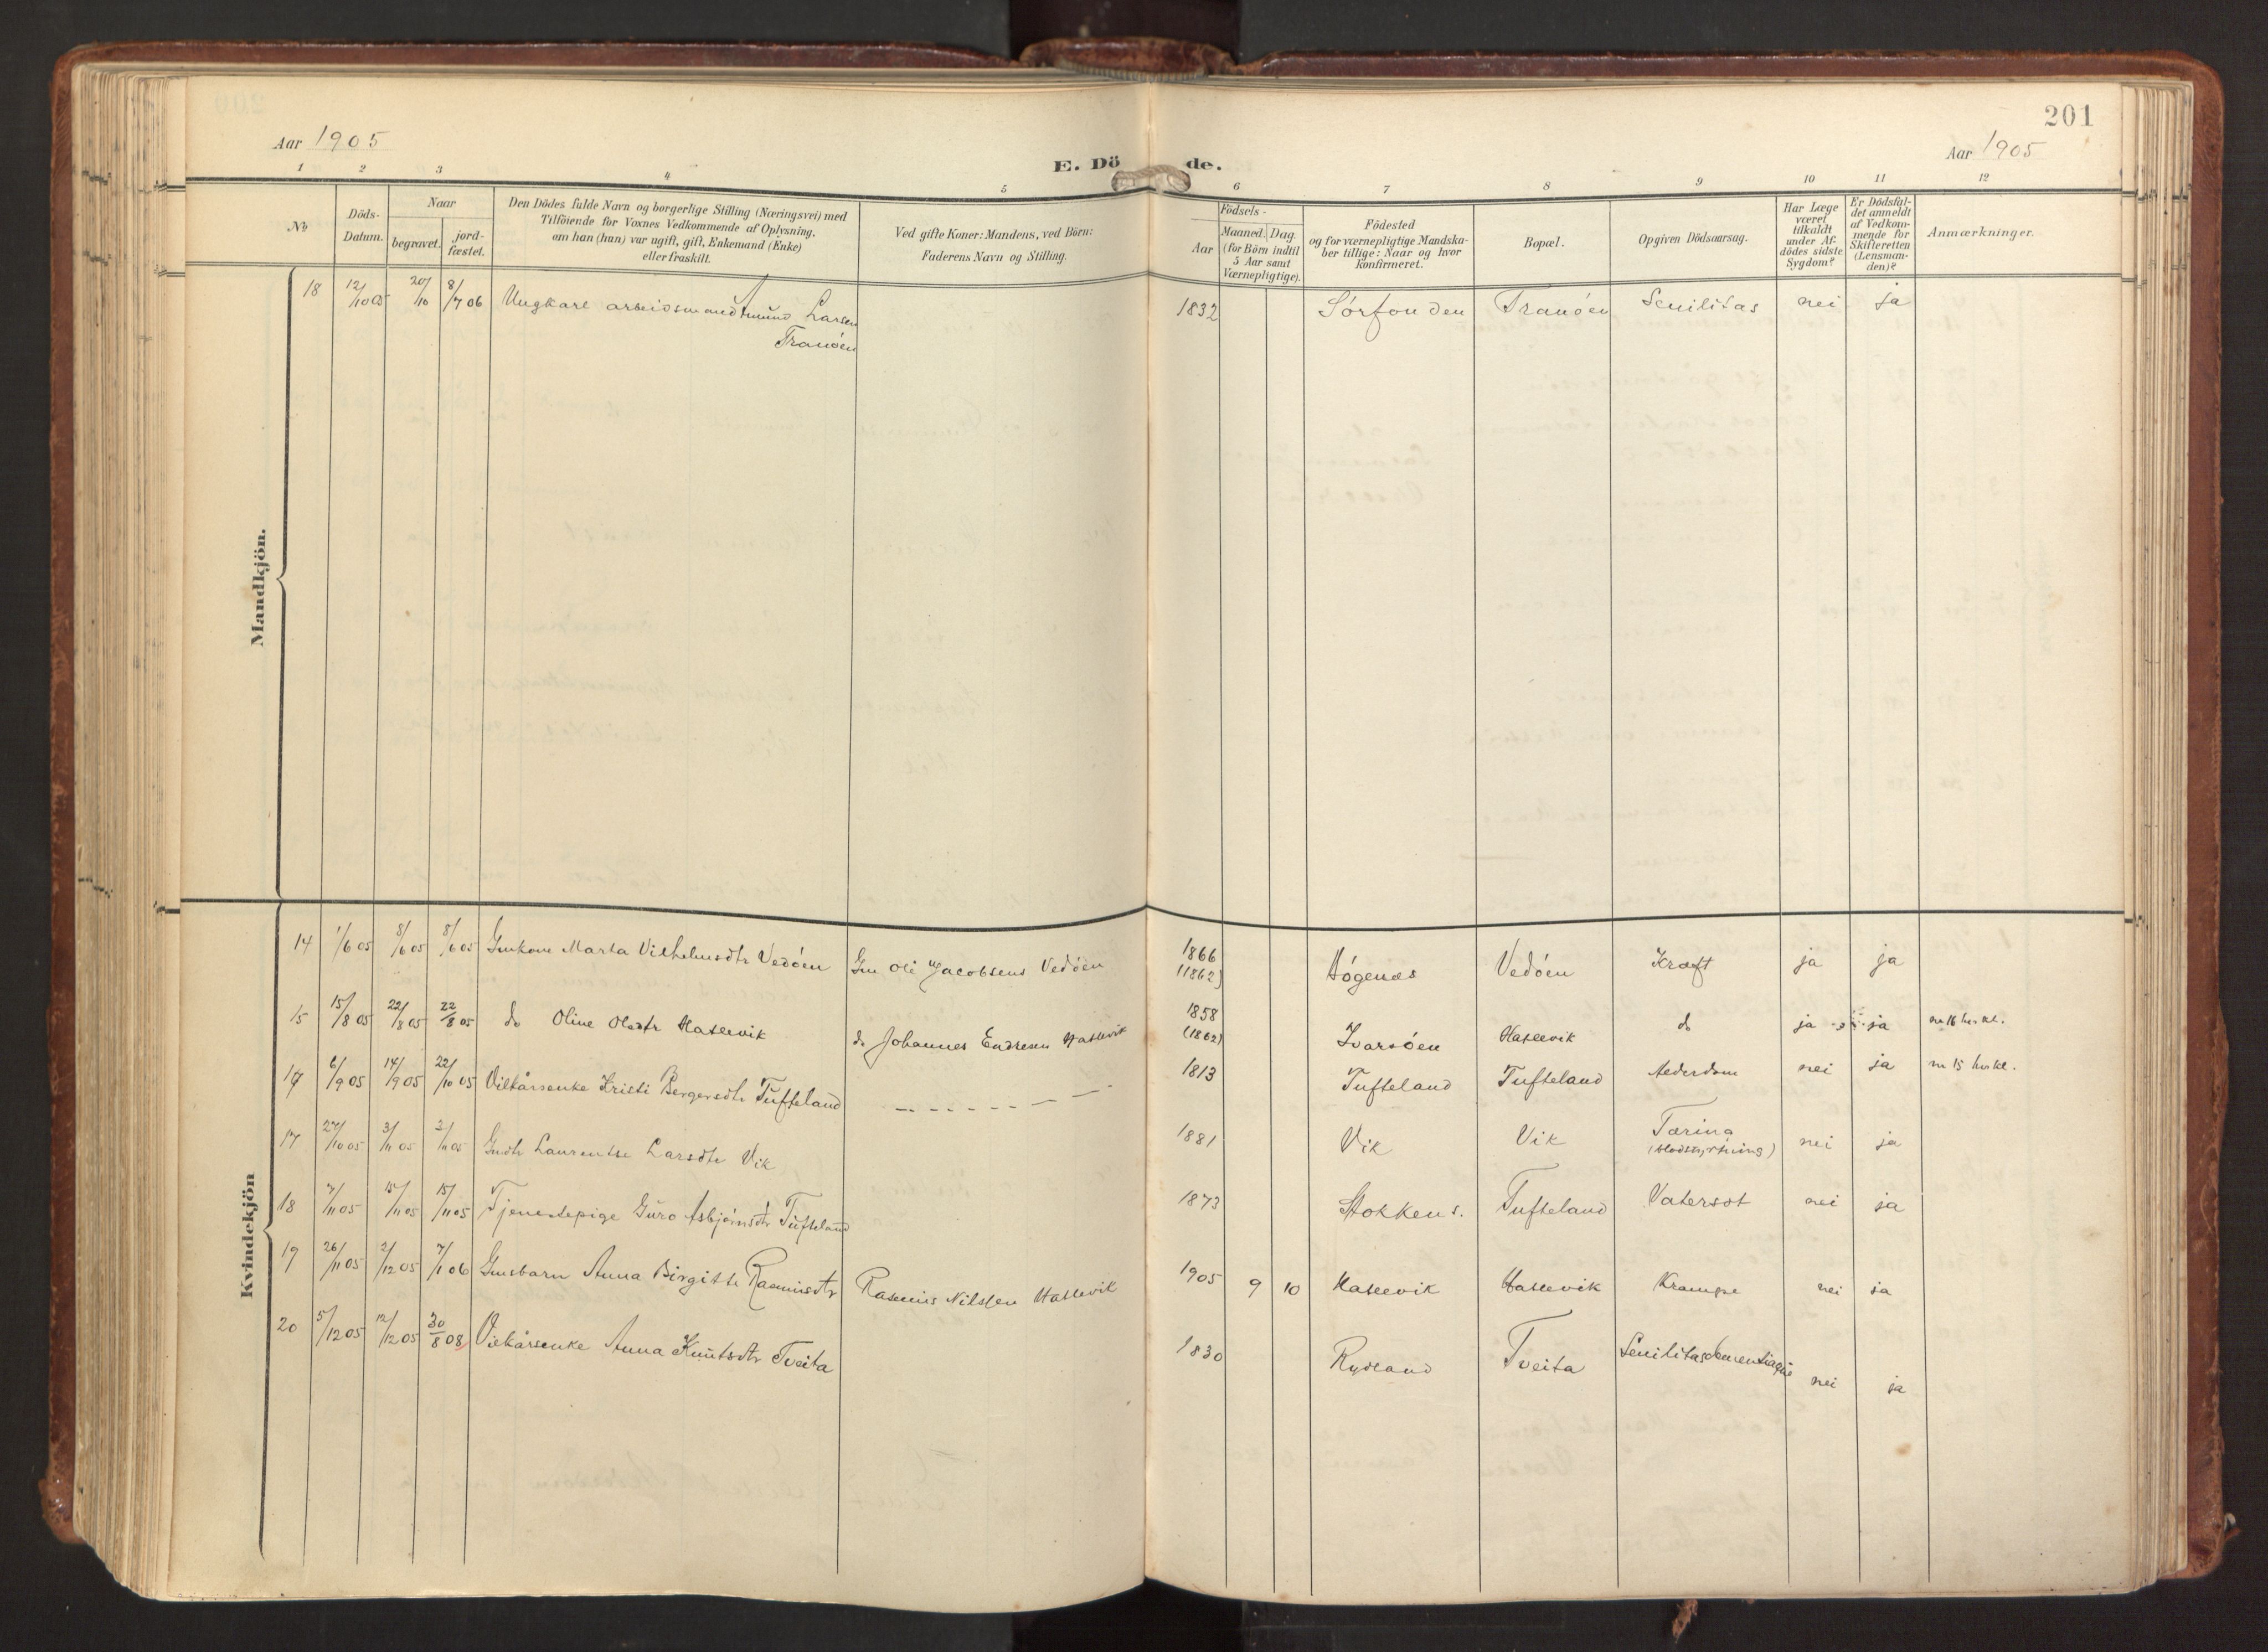 201
Aar 1905
E. Döde.
Aar 1905
1 2 3 4 5 6 7 8 9 10 11 12
No
Döds-Datum.
Naar
begravet.
jord-fæstet.
Den Dödes fulde Navn og borgerlige Stilling (Næringsvei) med
Tilföiende for Voxnes Vedkommende af Oplysning,
om han (hun) var ugift, gift, Enkemand (Enke)
eller fraskilt.
Ved gifte Koner: Mandens, ved Börn:
Faderens Navn og Stilling.
Födsels-
Aar
Maaned. Dag.
(for Börn indtil
5 Aar samt
Værnepligtige).
Födested
og for værnepligtige Mandska-
ber tillige: Naar og hvor
konfirmeret.
Bopæl.
Opgiven Dödsaarsag.
Har Læge
været
tilkaldt
under Af-
dödes sidste
Sygdom?
Er Dödsfal-
det anmeldt
af Vedkom-
mende for
Skifteretten
(Lensman-
den)?
Anmærkninger.
Mandkjön.
18 12/10 05 20/10 8/7 06 Ungkarl arbeidsmand Amund Larsen 1832 Sörfonden Tranöen Senilitas nei ja
Tranöen
Kvindekjön
14 1/6 05 8/6 05 8/6 05 Gmkone Marta Vilhelmsdtr Vedöen Gm Ole Jacobsens Vedöen 1866 Högenæs Vedöen Kræft ja ja
(1862)
15 15/8 05 22/8 05 22/8 05 do Oline Olsdtr Haslevik do Johannes Endresen Haslevik 1858 Ivarsöen Haslevik do ja ja no 16 her kl.
(1862)
16 6/9 05 14/9 05 22/10 05 Vilkårsenke Kristi Bergersdtr Tufteland 1813 Tufteland Tufteland Alderdom nei ja no 15 her kl.
17 27/10 05 3/11 05 3/11 05 Gmdtr Laurentse Larsdtr Vik 1881 Vik Vik Tæring nei ja
(blodstyrtning)
18 7/11 05 15/11 05 15/11 05 Tjenestepige Guro Asbjörnsdtr Tufteland 1873 Stokken s. Tufteland Vatersot nei ja
19 26/11 05 2/12 05 7/1 06 Gmsbarn Anna Birgitte Rasmusdtr Rasmus Nilssen Haslevik 1905 9 10 Haslevik Haslevik Krampe nei ja
20 5/12 05 12/12 05 30/8 08 Vilkårsenke Anna Knutsdtr Tveita 1830 Rydland Tveita Senilitas nei ja